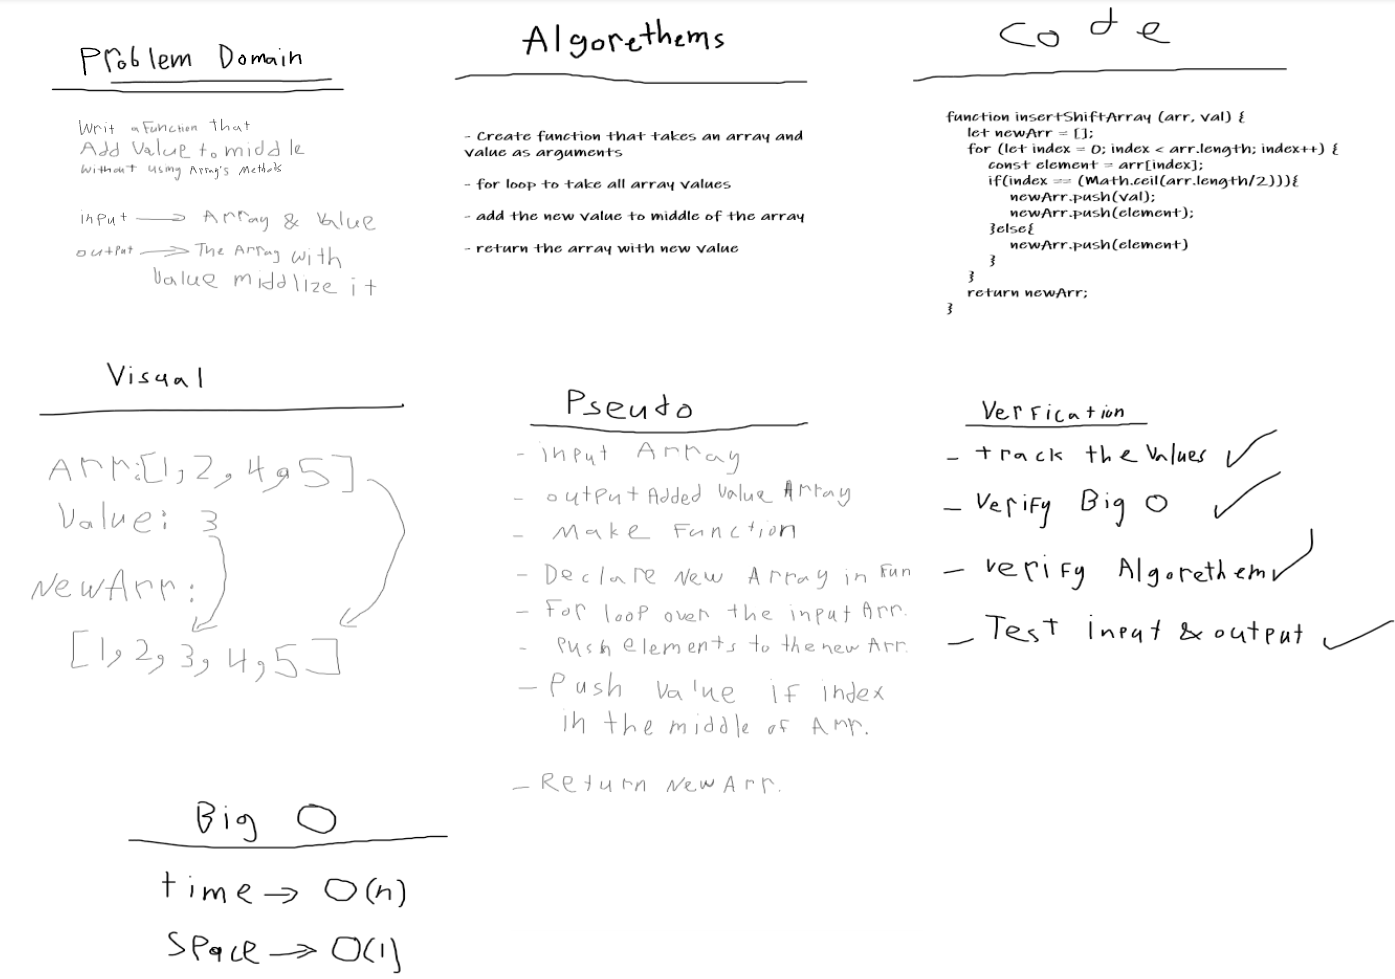 Problem Domain
Writ a Function that
Add Value to middle
without using Array's Methods
input → Array & Value
output → The Array with
Value middlize it
Algorethems
- Create function that takes an array and
value as arguments
- for loop to take all array values
- add the new value to middle of the array
- return the array with new value
Code
function insertShiftArray (arr, val) {
let newArr = [];
for (let index = 0; index < arr.length; index++) {
const element = arr[index];
if(index == (Math.ceil(arr.length/2))){
newArr.push(val);
newArr.push(element);
}else{
newArr.push(element)
}
}
return newArr;
}
Visual
Arr:[1,2,4,5]
Value: 3
NewArr:
[1,2,3,4,5]
Pseudo
- input Array
- output Added Value Array
- Make Function
- Declare New Array in Fun
- For loop over the input Arr.
- Push elements to the new Arr.
- Push Value if index
in the middle of Arr.
- Return New Arr.
Verfication
- track the Values ✓
- Verify Big O ✓
- verify Algorethem ✓
- Test input & output ✓
Big O
time → O(n)
Space → O(1)